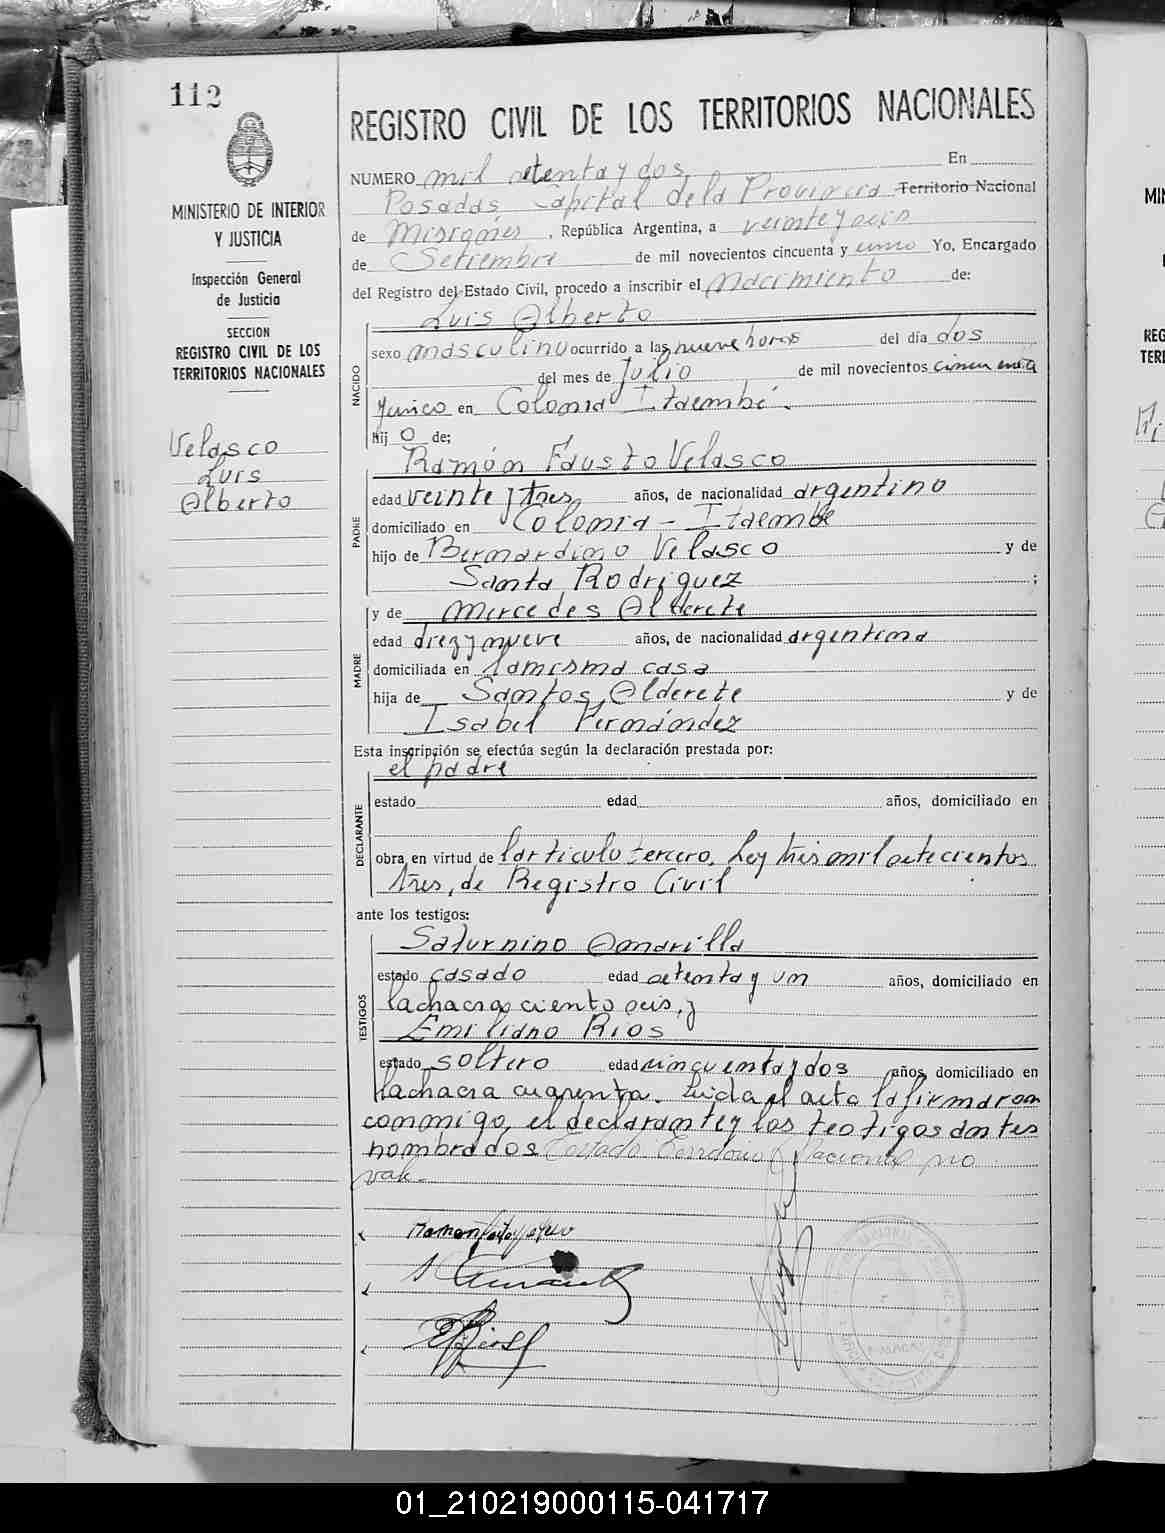 112
MINISTERIO DE INTERIOR
Y JUSTICIA
Inspección General
de Justicia
SECCION
REGISTRO CIVIL DE LOS
TERRITORIOS NACIONALES
Velasco
Luis
Alberto
REGISTRO CIVIL DE LOS TERRITORIOS NACIONALES
NUMERO mil setenta y dos En
Posadas Capital dela Provincia Territorio Nacional
de Misiones, República Argentina, a veinte y seis
de Setiembre de mil novecientos cincuenta y uno Yo, Encargado
del Registro del Estado Civil, procedo a inscribir el nacimiento de:
Luis Alberto
NACIDO
sexo masculino ocurrido a las nueve horas del día dos
del mes de Julio de mil novecientos cincuenta
yunico en Colonia Itaembé.
hij o de;
Ramón Fausto Velasco
PADRE
edad veinte y tres años, de nacionalidad argentino
domiciliado en Colonia - Itaembé
hijo de Bernardino Velasco y de
Santa Rodriguez ;
y de Mercedes Alderete
MADRE
edad diez y nueve años, de nacionalidad argentina
domiciliada en lamisma casa
hija de Santos Alderete y de
Isabel Fernández
Esta inscripción se efectúa según la declaración prestada por:
el padre
DECLARANTE
estado edad años, domiciliado en
obra en virtud de lartículo tercero, Ley tres mil setecientos
tres, de Registro Civil
ante los testigos:
Saturnino Amarilla
TESTIGOS
estado casado edad setenta y un años, domiciliado en
lachacra ciento seis, y
Emiliano Rios
estado soltero edad cincuenta y dos años, domiciliado en
lachacra cuarenta. Leida el acta lafirmaron
conmigo, el declarante y los testigos antes
nombrados Testado Territorio Nacional no
vale.
01_210219000115-041717